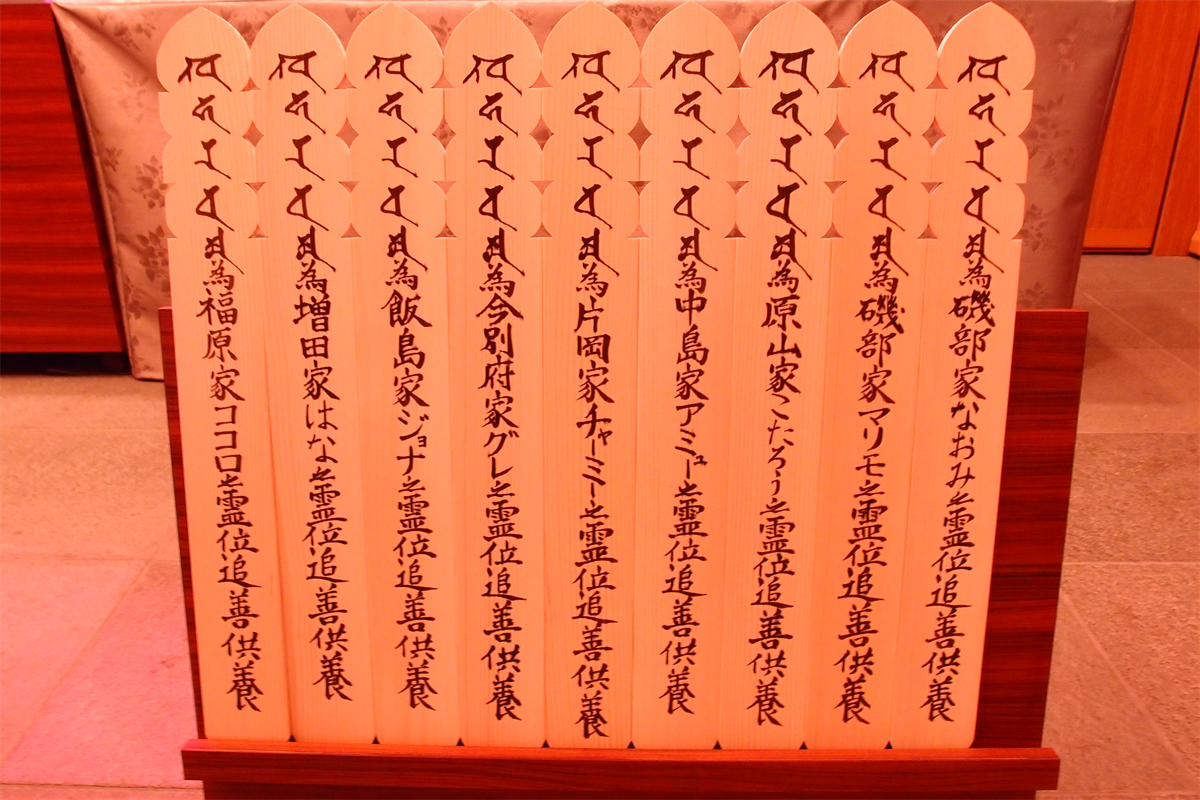 為磯部家なおみ之霊位追善供養
為磯部家マリモ之霊位追善供養
為原山家こたろう之霊位追善供養
為中島家アミュー之霊位追善供養
為片岡家チャーミー之霊位追善供養
為今別府家グレ之霊位追善供養
為飯島家ジョナ之霊位追善供養
為増田家はな之霊位追善供養
為福原家ココロ之霊位追善供養